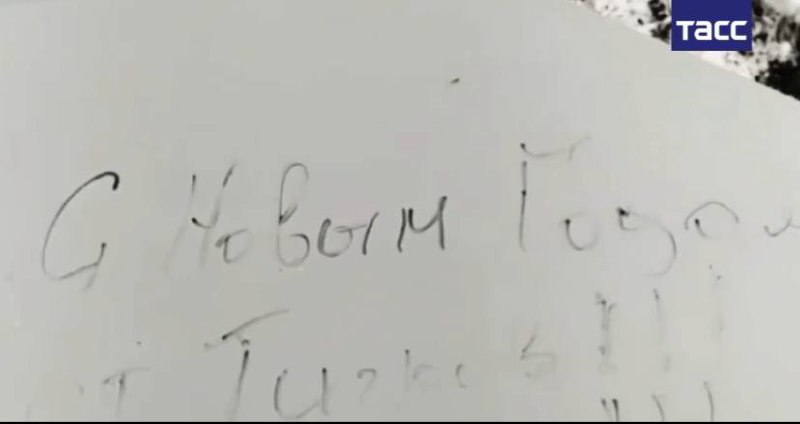 ТАСС
С Новым Годом
от
!!!
!!!